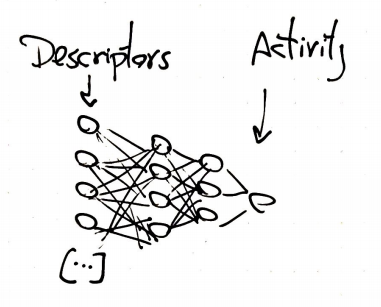 Descriptors
Activity
[...]